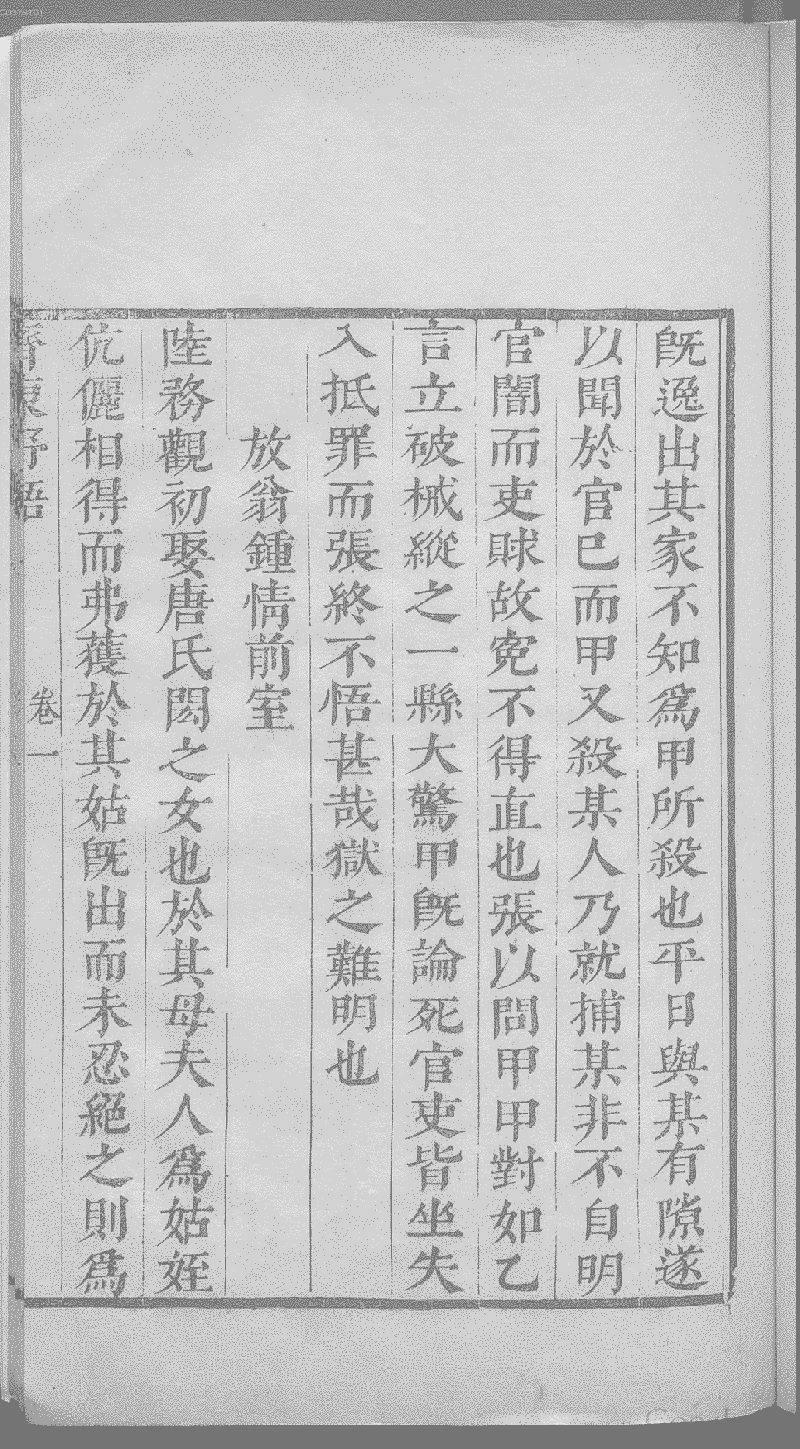 旣逸出其家不知爲甲所殺也平日與某有隙遂
以聞於官已而甲又殺某人乃就捕某非不自明
官闇而吏賕故寃不得直也張以問甲甲對如乙
言立破械縱之一縣大驚甲旣論死官吏皆坐失
入抵罪而張終不悟甚哉獄之難明也
放翁鍾情前室
陸務觀初娶唐氏閎之女也於其母夫人爲姑姪
伉儷相得而弗獲於其姑旣出而未忍絕之則爲
齊東野語
卷一